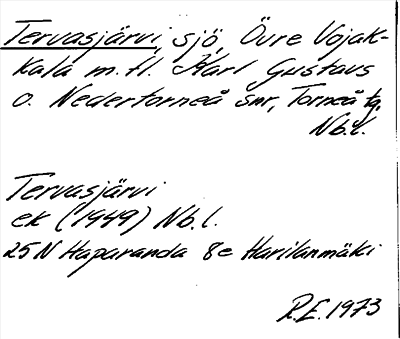 Tervasjärvi, sjö, Övre Vojak-
kala m. fl. Karl Gustavs
o. Nedertorneå snr, Torneå tg,
Nb.l.
Tervasjärvi
ek (1949) Nb.l.
25 N Haparanda 8e Harilanmäki
R.E. 1973